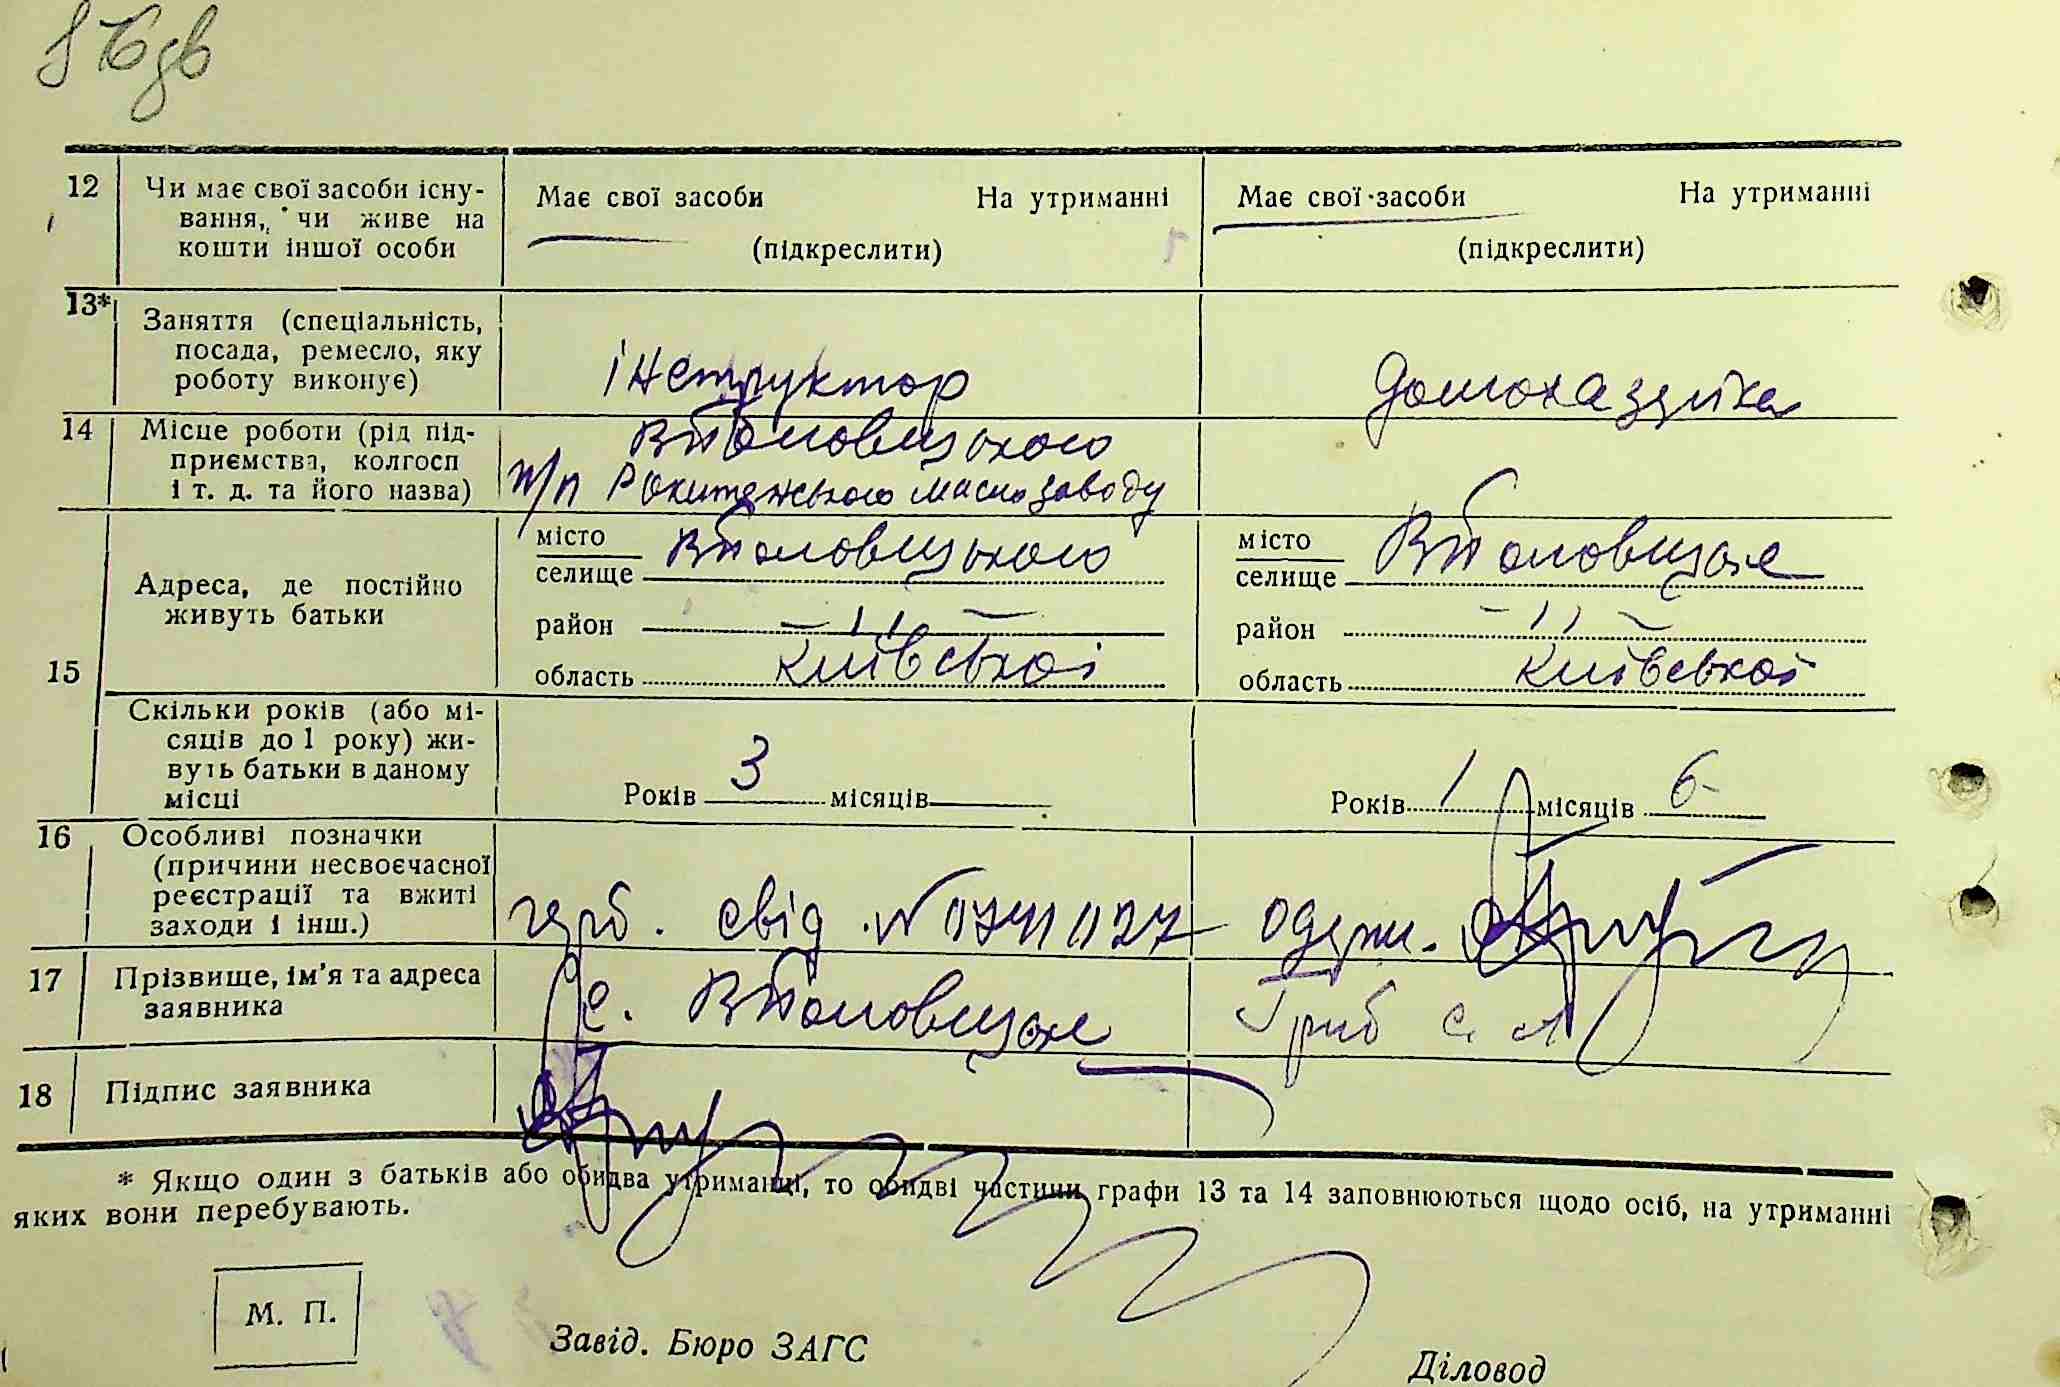 12
Чи має свої засоби існу-
вання, чи живе на
кошти іншої особи
Має свої засоби На утриманні
(підкреслити)
Має свої засоби На утриманні
(підкреслити)
13*
Заняття (спеціальність,
посада, ремесло, яку
роботу виконує)
інструктор
домохазяйка
14
Місце роботи (рід під-
приємства, колгосп
і т. д. та його назва)
В Половецького
м/п Рокитянського маслозаводу
15
Адреса, де постійно
живуть батьки
місто
селище В Половецького
район — ,, —
область Київської
місто
селище В Половецьке
район — ,, —
область Київської
Скільки років (або мі-
сяців до 1 року) жи-
вуть батьки в даному
місці
Років 3 місяців
Років 1 місяців 6
16
Особливі позначки
(причини несвоєчасної
реєстрації та вжиті
заходи і інш.)
герб. свід. № одерж.
17
Прізвище, ім'я та адреса
заявника
с. В Половецьке
Гриб С. Л
18
Підпис заявника
* Якщо один з батьків або обидва утриманці, то обидві частини графи 13 та 14 заповнюються щодо осіб, на утриманні
яких вони перебувають.
М. П.
Завід. Бюро ЗАГС
Діловод